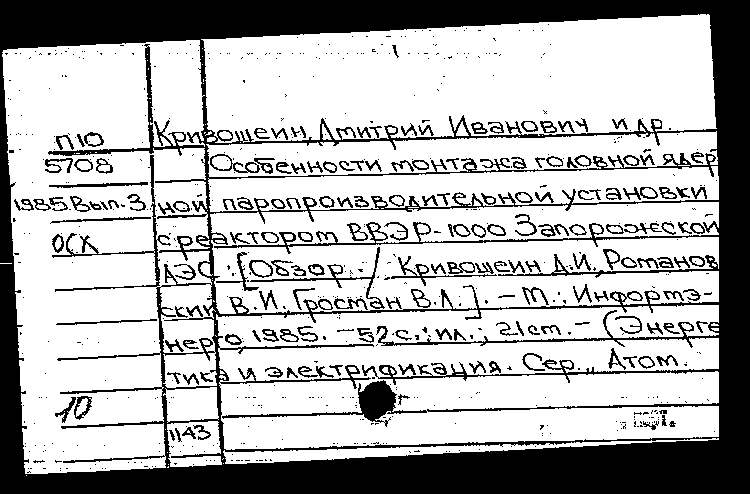 Кривошеин, Дмитрий Иванович и др.
П10
5708
Особенности монтажа головной ядер
1985. Вып. 3
ной паропроизводительной установки
ОСХ
с реактором ВВЭР-1000 Запорожской
АЭС : [Обзор . / Кривошеин Д.И., Романов
ский В.И., Гросман В.Л.]. - М.: Информэ-
нерго, 1985. - 52 с.: ил.; 21 см. - (Энерге
тика и электрификация. Сер. „ Атом.
10
1143